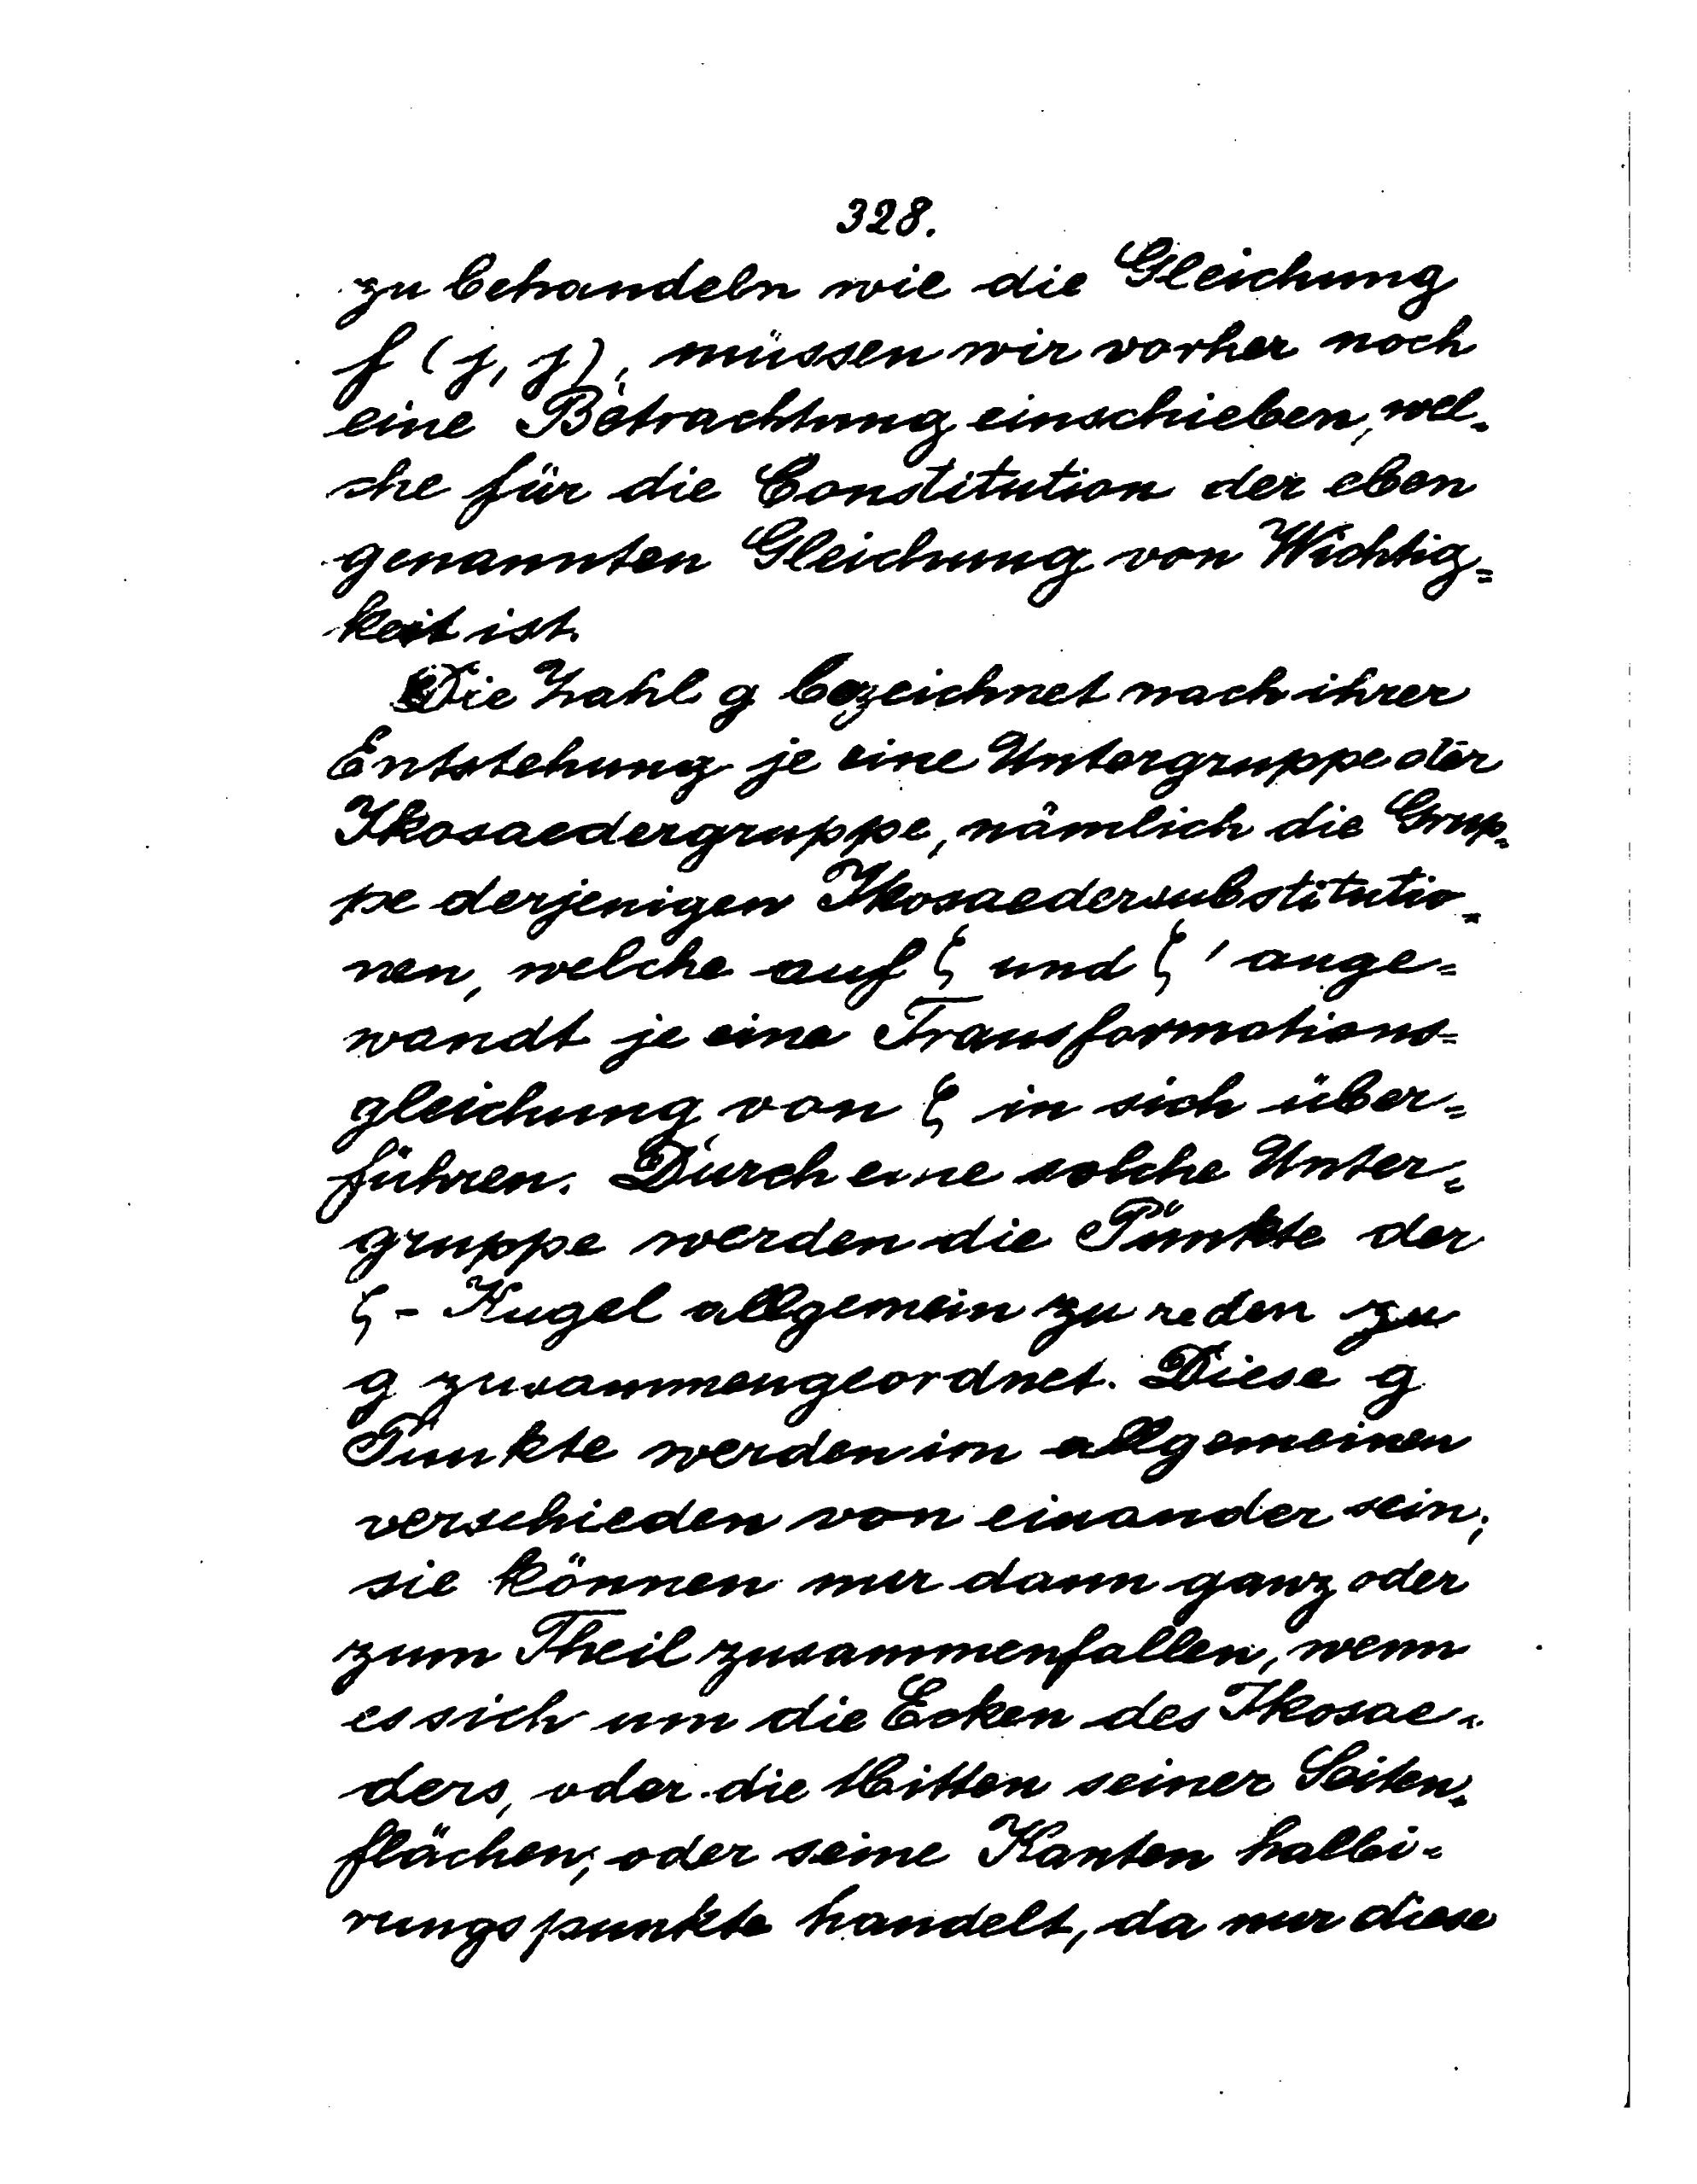 328.
zu behandeln wie die Gleichung
f (j, j), müssen wir vorher noch
eine Betrachtung einschieben, wel-
che für die Constitution der eben
genannten Gleichung von Wichtig=
keit ist.
Die Zahl g bezeichnet nach ihrer
Entstehung je eine Untergruppe der
Ikosaedergruppe, nämlich die Grup-
pe derjenigen Ikosaedersubstitutio-
nen, welche auf ζ und ζ' ange=
wandt je eine Transformations=
gleichung von ζ in sich über=
führen. Durch eine solche Unter=
gruppe werden die Punkte der
ζ - Kugel allgemein zu reden zu
g zusammengeordnet. Diese g
Punkte werden im allgemeinen
verschieden von einander sein;
sie können nur dann ganz oder
zum Theil zusammenfallen, wenn
es sich um die Ecken des Ikosae-
ders, oder die Mitten seiner Seiten-
flächen, oder seine Kanten halbi-
rungspunkte handelt, da nur diese